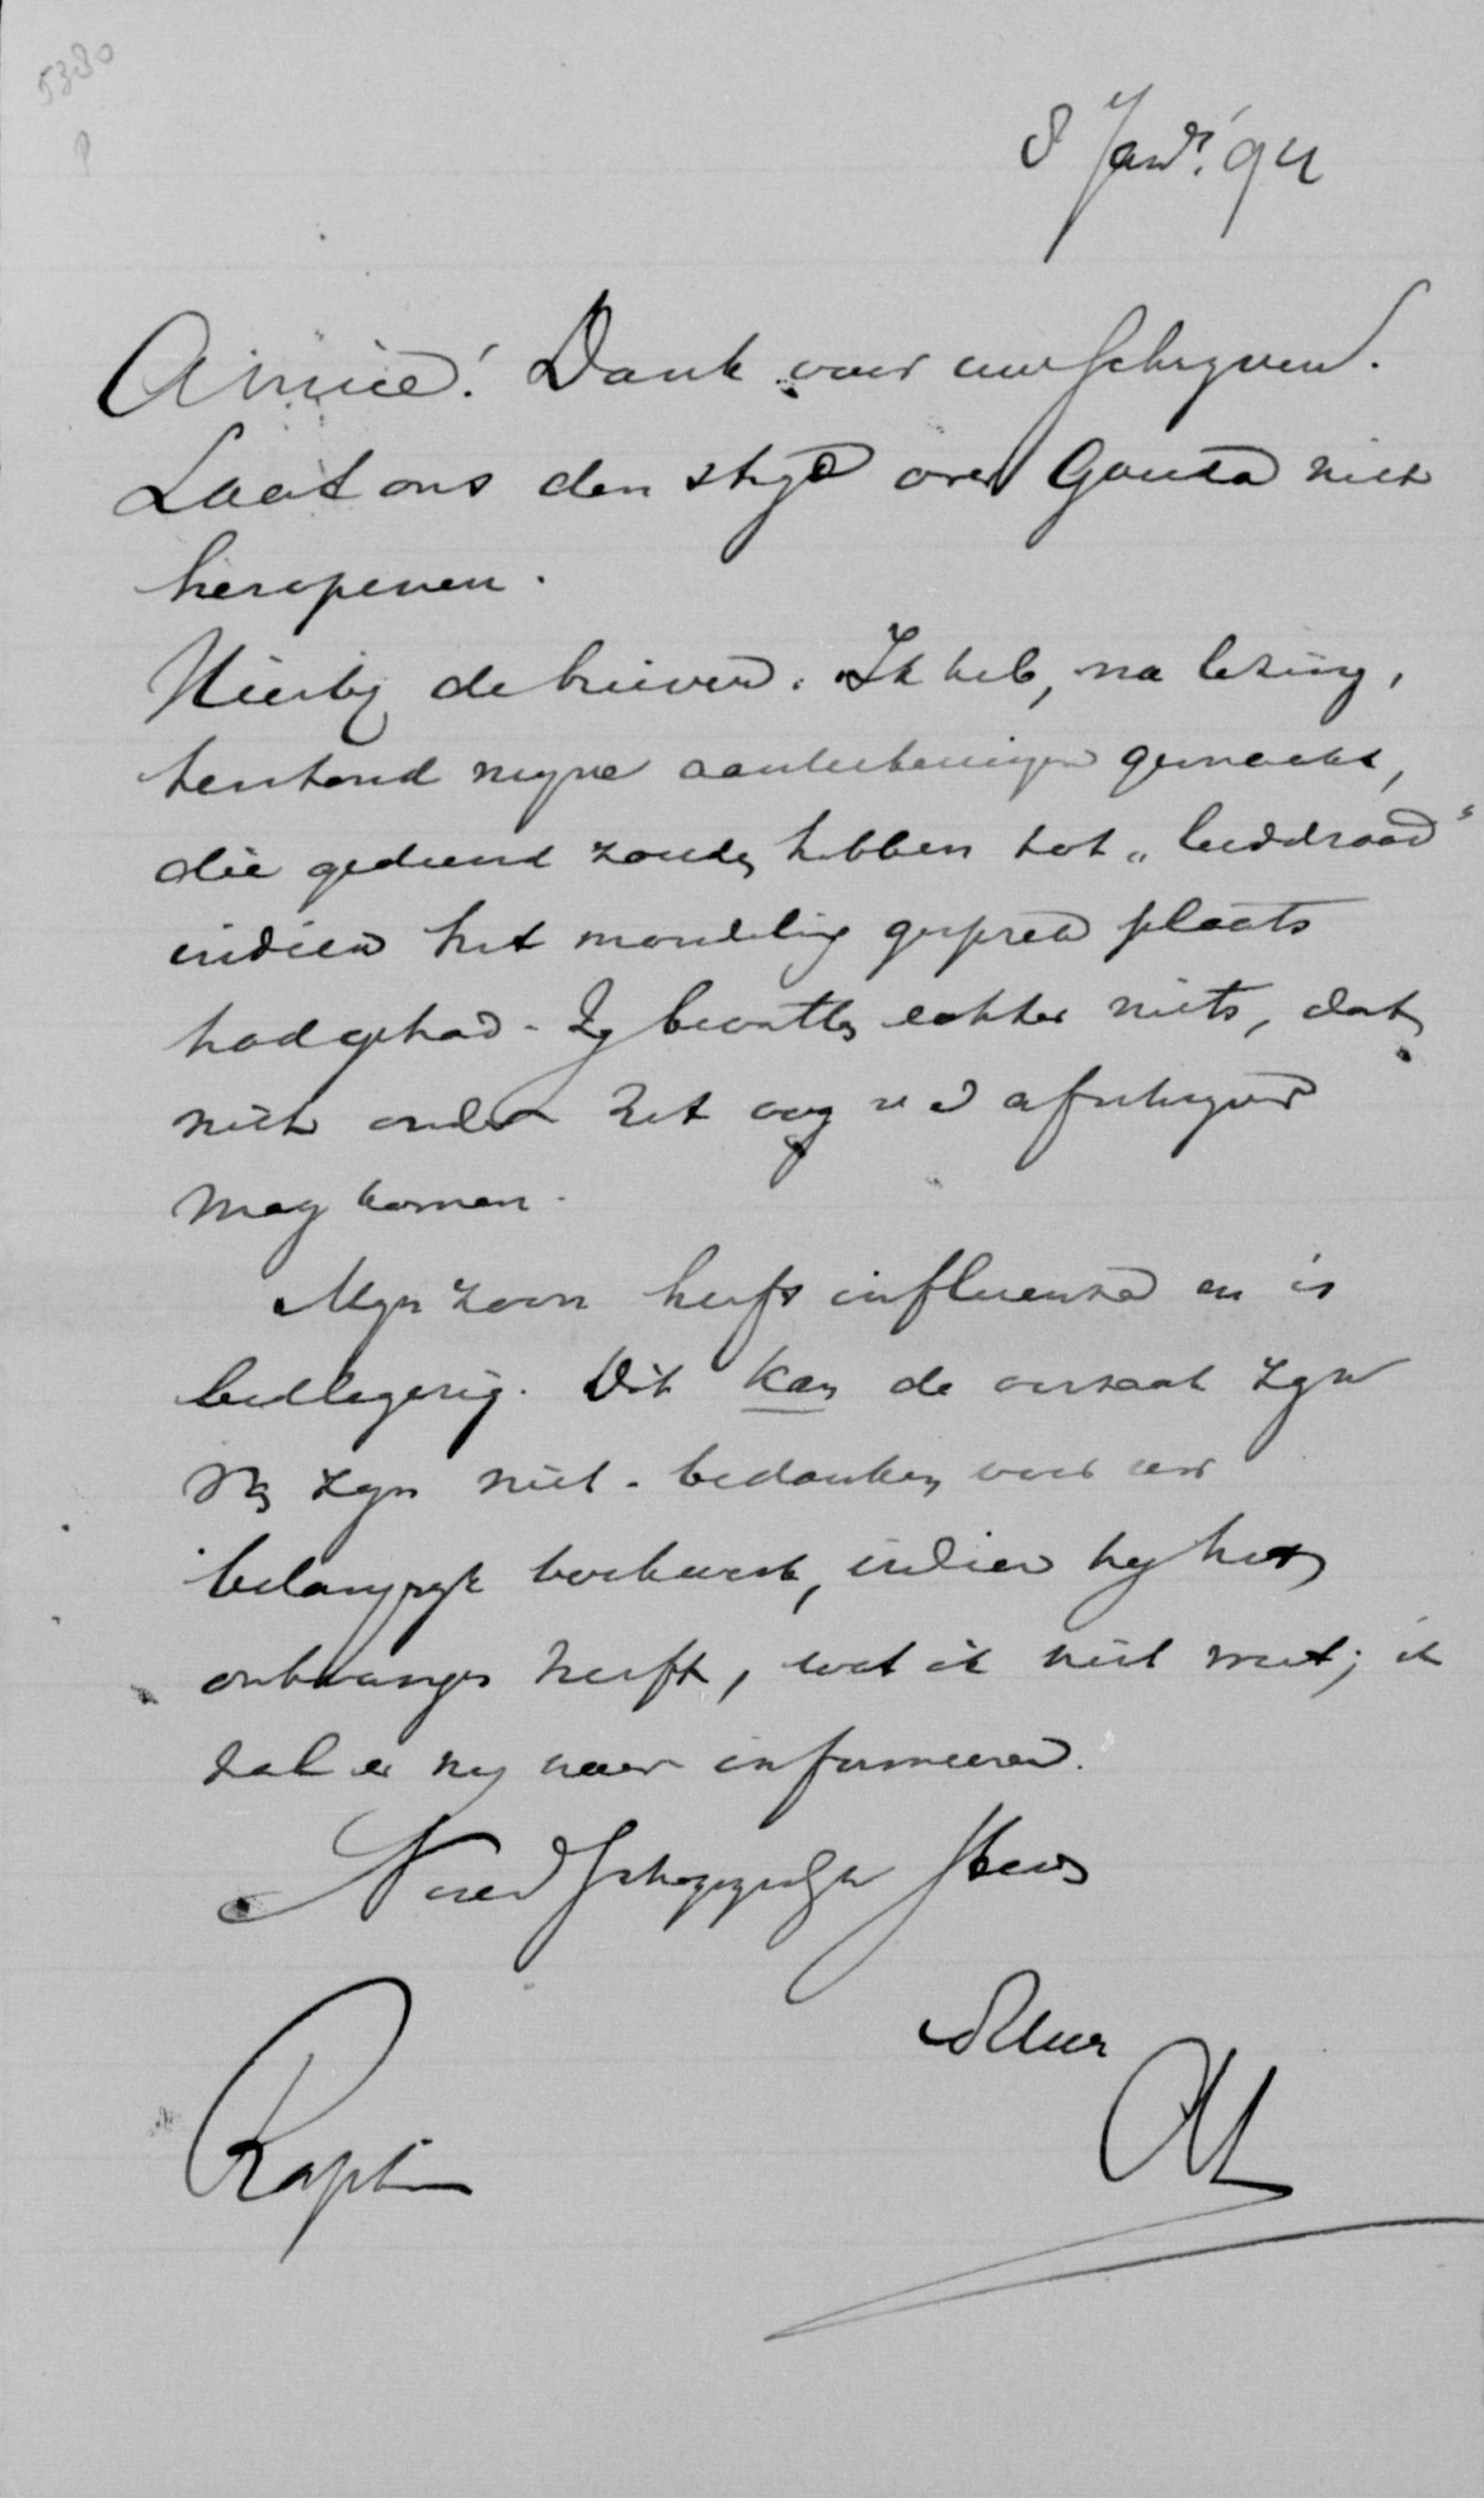 5380
P
8 Janr. '94
Amice! Dank voor uw schrijven.
Laat ons den strijd over Gouda niet
heropenen.
Hierbij de brieven. Ik heb, na lezing,
nevengaande aanteekeningen gemaakt,
die gediend zouden hebben tot „leiddraad"
indien het mondeling gesprek plaats
had gehad. Zij bevatten echter niets, dat
niet onder het oog v d afschrijver
mag komen.
Mijn zoon heeft influenza en is
bedlegerig. Dit kan de oorzaak zijn
v zijn niet-bedanken voor uw
belangrijk boekwerk, indien hij het
ontvangen heeft, wat ik niet weet; ik
zal er hij naar informeeren.
Kapt